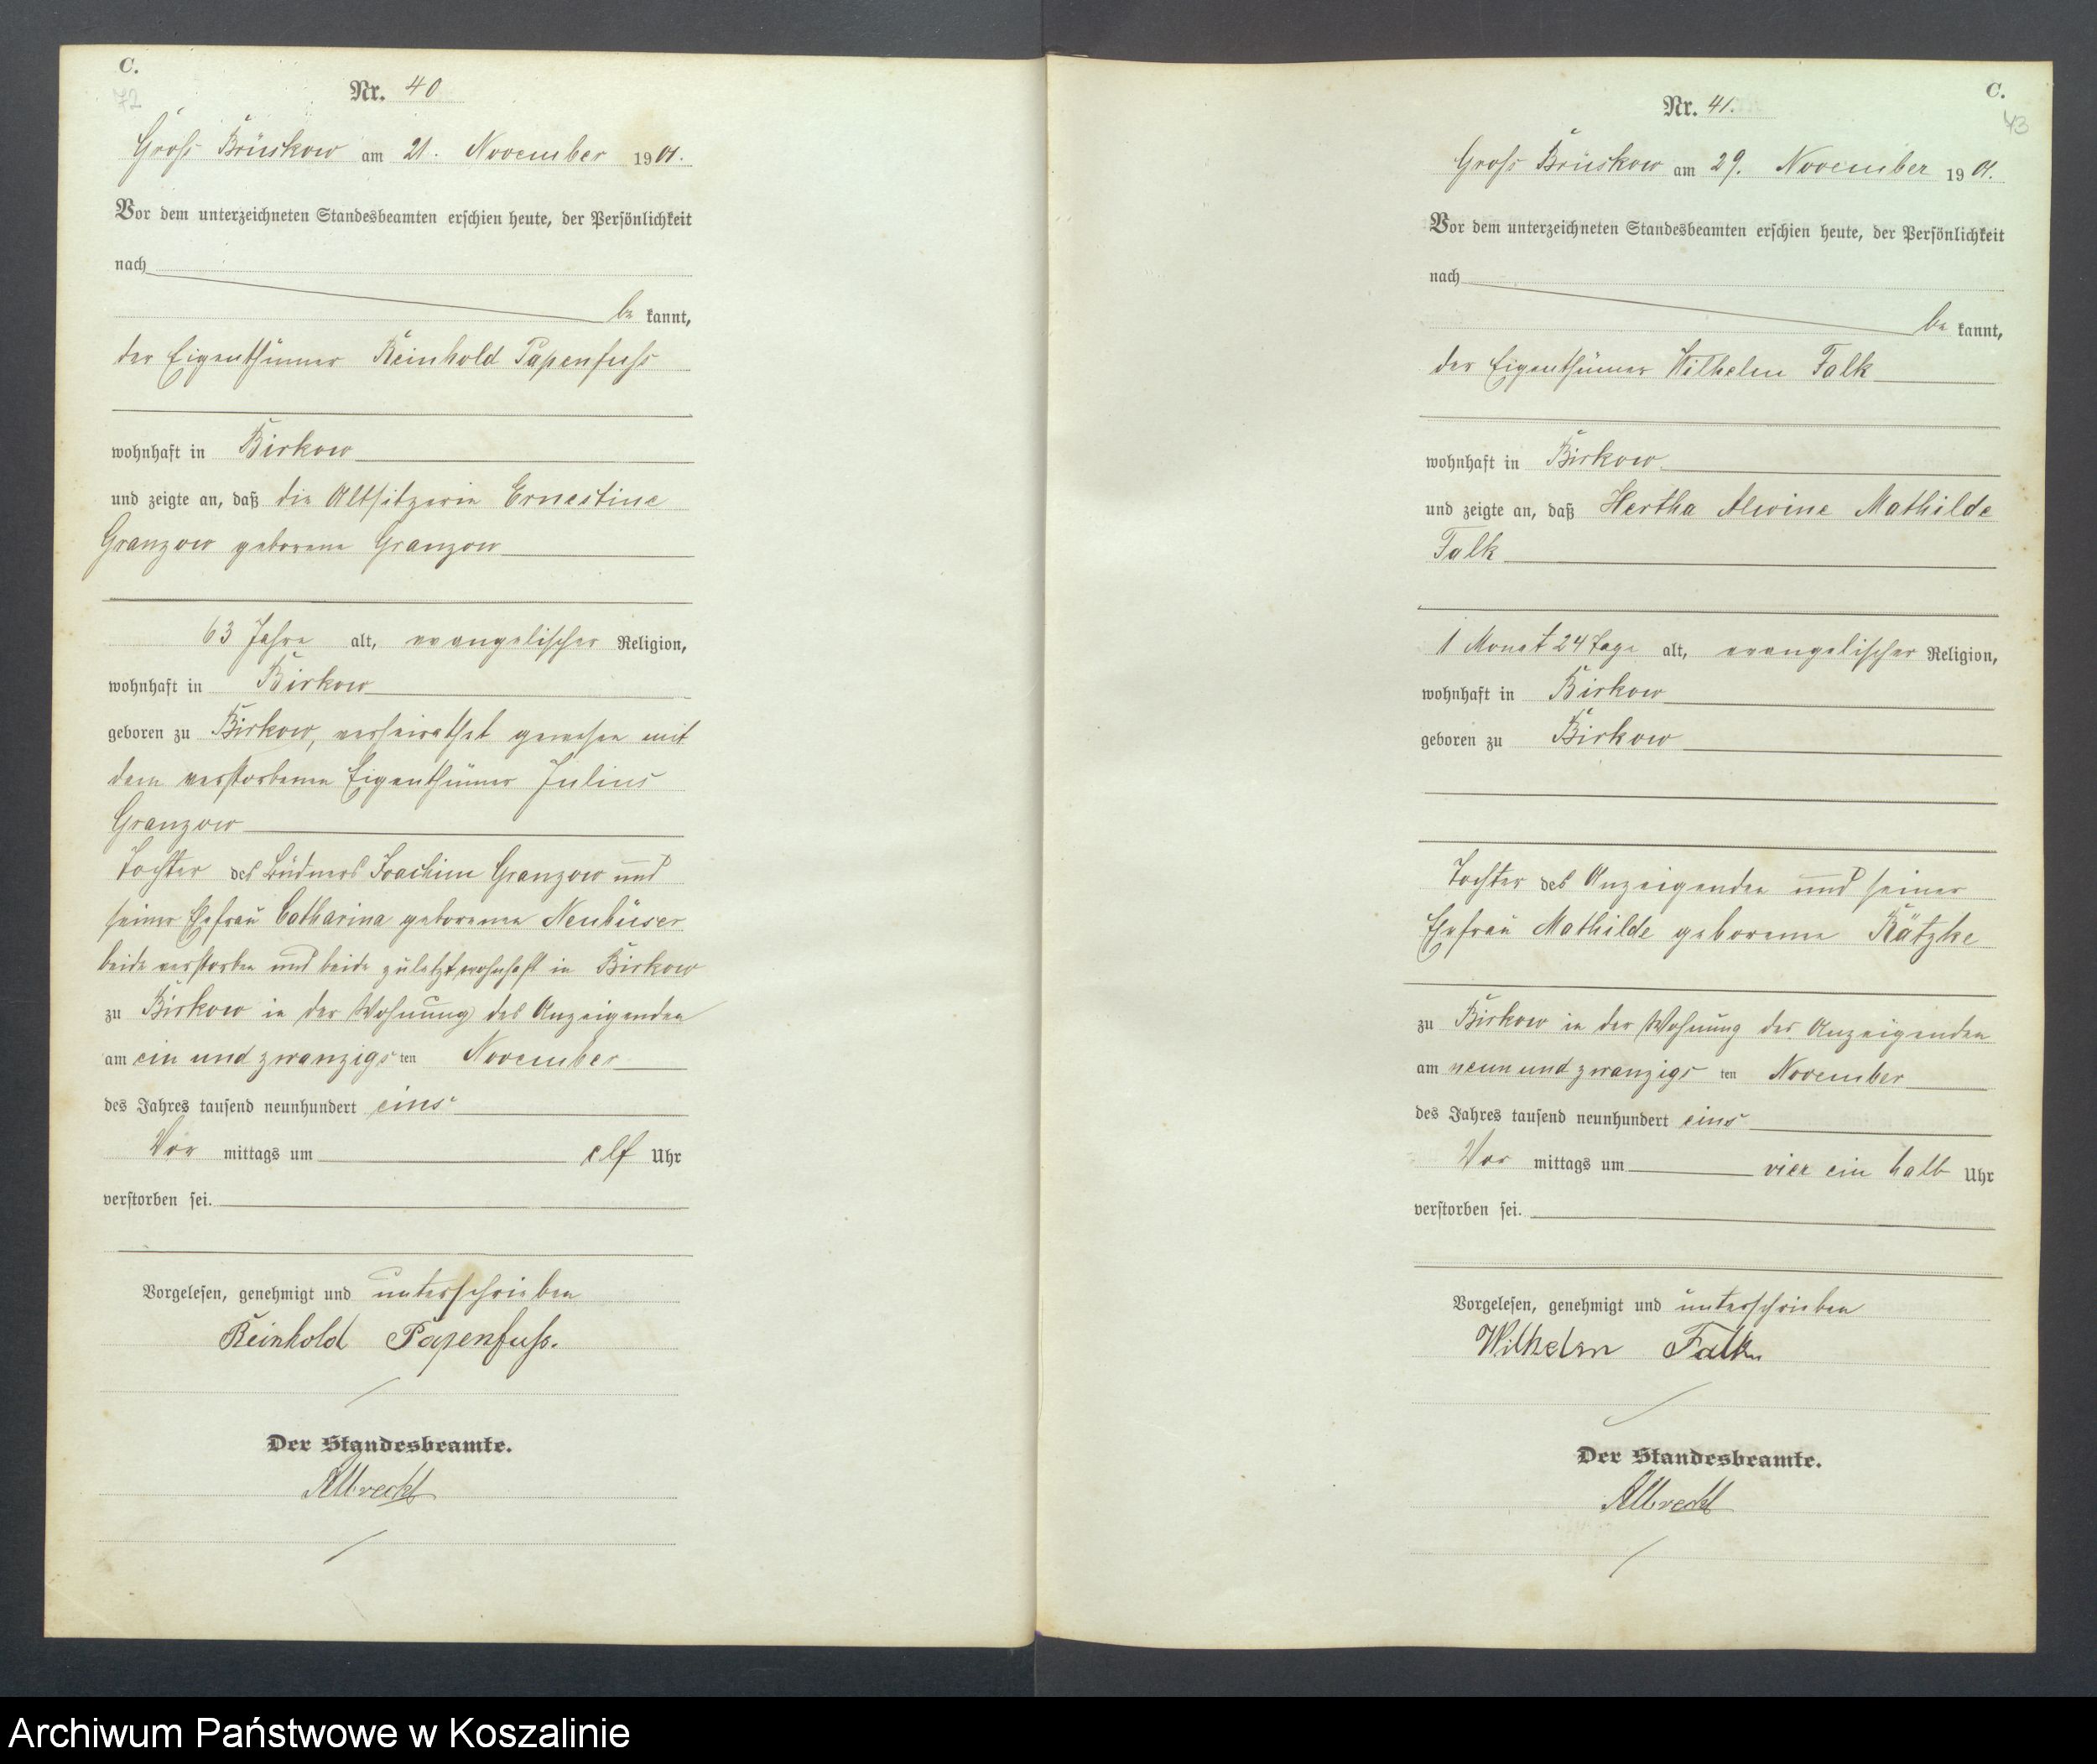 C.
72
Nr. 40
Groß Brüskow am 21. November 1901.
Vor dem unterzeichneten Standesbeamten erschien heute, der Persönlichkeit
nach
be kannt,
der Eigenthümer Reinhold Papenfuß
wohnhaft in Birkow
und zeigte an, daß die Altsitzerin Ernestine
Granzow geborene Granzow
63 Jahre alt, evangelischer Religion,
wohnhaft in Birkow
geboren zu Birkow, verheirathet gewesen mit
dem verstorbenen Eigenthümer Julius
Granzow
Tochter des Büdners Joachim Granzow und
seiner Ehefrau Catharina geborenen Neubüser
beide verstorben und beide zuletzt wohnhaft in Birkow
zu Birkow in der Wohnung des Anzeigenden
am ein und zwanzigsten November
des Jahres tausend neunhundert eins
Vor mittags um elf Uhr
verstorben sei.
Vorgelesen, genehmigt und unterschrieben
Reinhold Papenfuß.
Der Standesbeamte.
Albrecht
C.
73
Nr. 41.
Groß Brüskow am 29. November 1901.
Vor dem unterzeichneten Standesbeamten erschien heute, der Persönlichkeit
nach
be kannt,
der Eigenthümer Wilhelm Falk
wohnhaft in Birkow
und zeigte an, daß Hertha Alwine Mathilde
Falk
1 Monat 24 Tage alt, evangelischer Religion,
wohnhaft in Birkow
geboren zu Birkow
Tochter des Anzeigenden und seiner
Ehefrau Mathilde geborene Rätzke
zu Birkow in der Wohnung des Anzeigenden
am neun und zwanzigsten November
des Jahres tausend neunhundert eins
Vor mittags um vier ein halb Uhr
verstorben sei.
Vorgelesen, genehmigt und unterschrieben
Wilhelm Falk
Der Standesbeamte.
Albrecht
Archiwum Państwowe w Koszalinie